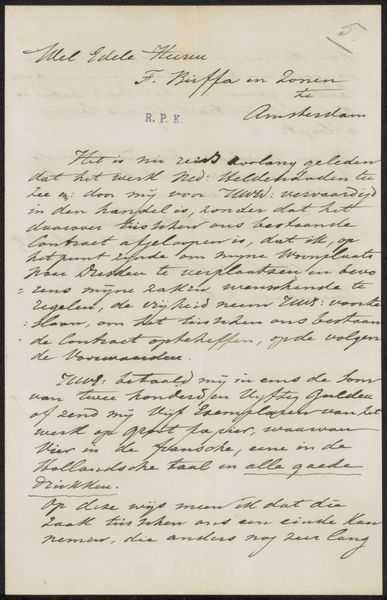 5.
Wel Edele Heeren
F. Buffa en Zonen
te
Amsterdam
R. P. K.
Het is nu reeds zoolang geleden
dat het werk Ned: Heldendaden te
zee door mij voor UWE: vervaardigd
in den handel is, zonder dat het
daarover tusschen ons bestaande
Contract afgeloopen is, dat ik, op
het punt zijnde om mijne Woonplaats
naar Dresden te verplaatsen en bevo
rens mijne zaken wenschende te
regelen, de vrijheid neem UWE: voorte
slaan, om het tusschen ons bestaan
de Contract optehffen, op de volgen
de Voorwaarden.
UWE: betaald mij in eens de Som
van twee honderd en vyftig Gulden
of zend mij vijf Exemplaren van het
werk op groot papier, waarvan
Vier in de fransche, eene in de
Hollandsche taal en alle goede
Drukken.
Op deze wijs meen ik dat die
zaak tusschen ons een einde kan
nemen, die anders nog zeer lang